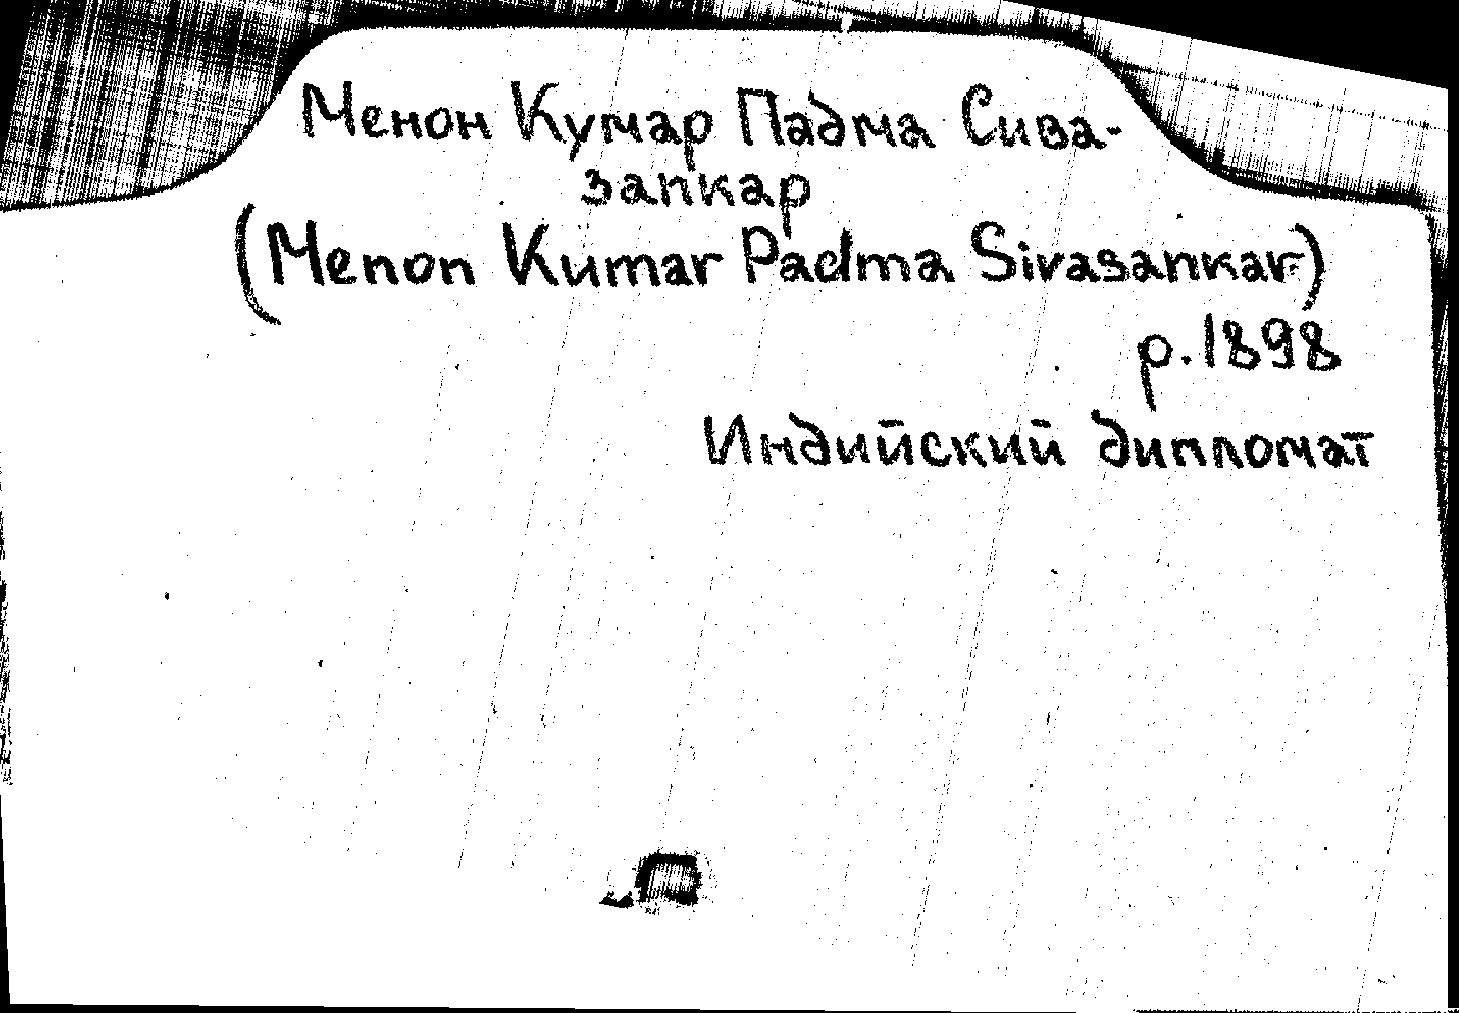 Менон Кумар Падма Сива-
запкар
(Menon Kumar Padma Sivasankar)
р. 1898
Индийский дипломат